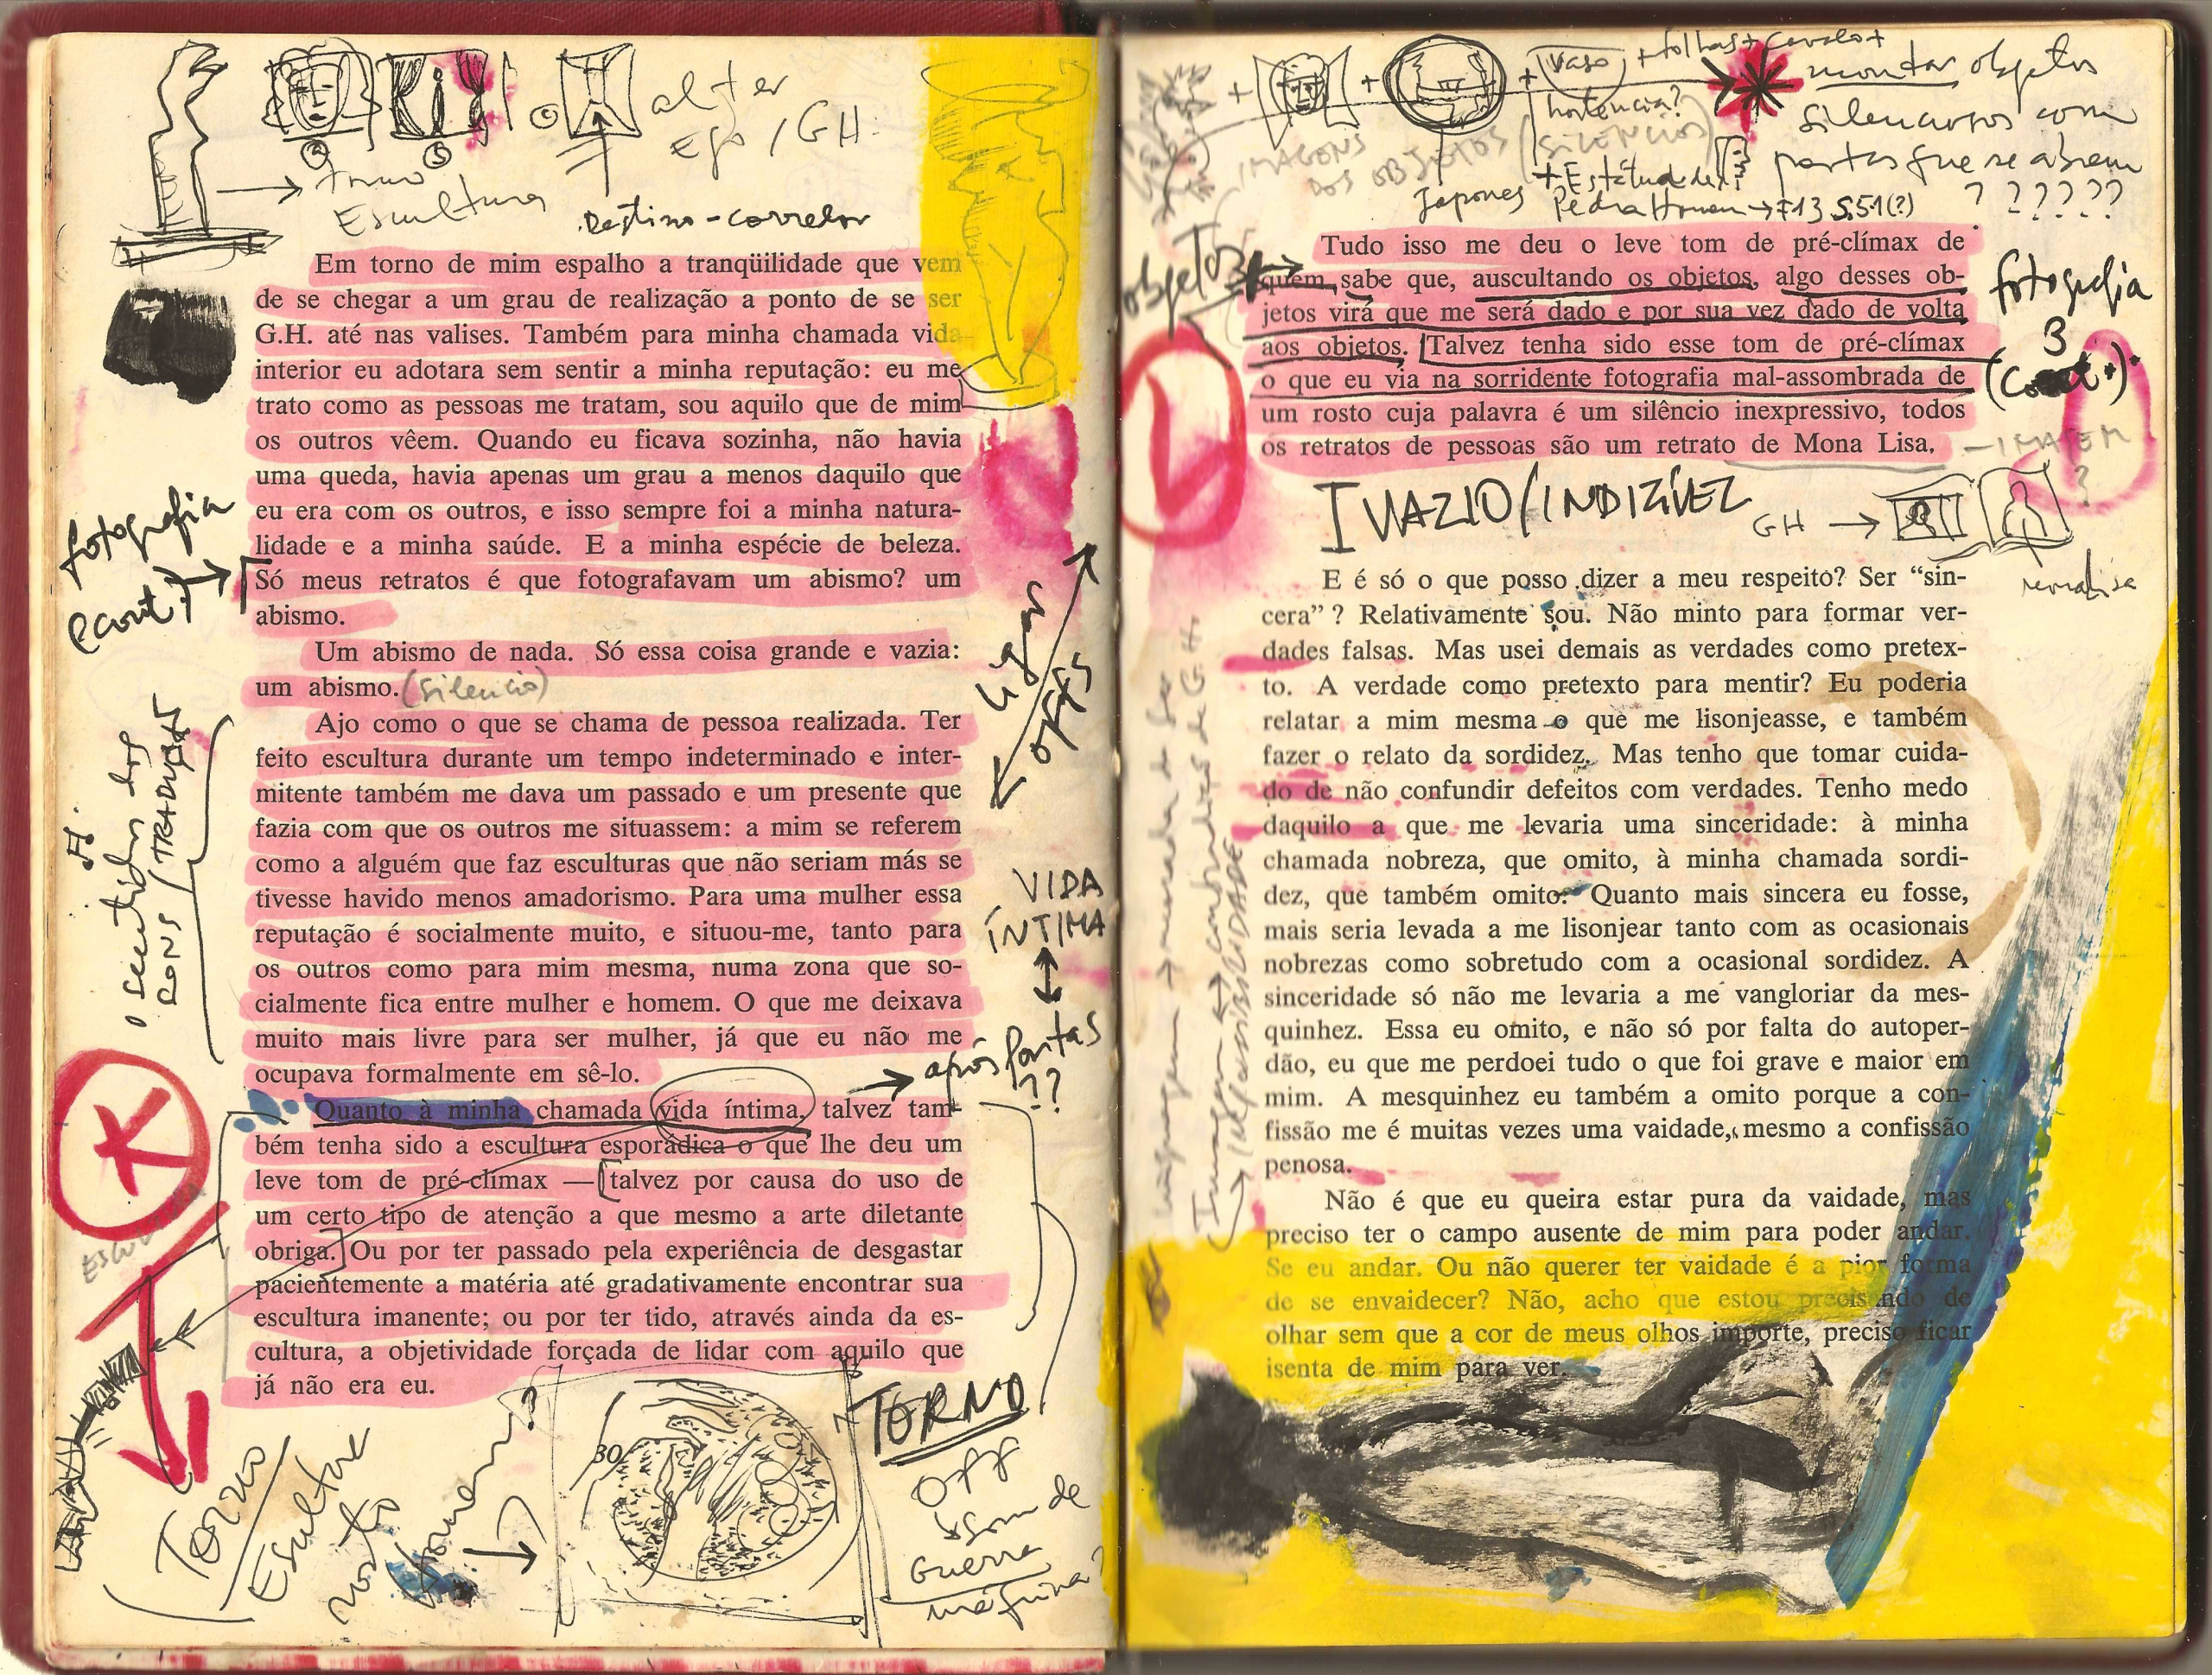 alter
Ego / GH
Escultura
Destino-corredor
Em torno de mim espalho a tranqüilidade que vem
de se chegar a um grau de realização a ponto de se ser
G.H. até nas valises. Também para minha chamada vida
interior eu adotara sem sentir a minha reputação: eu me
trato como as pessoas me tratam, sou aquilo que de mim
os outros vêem. Quando eu ficava sozinha, não havia
uma queda, havia apenas um grau a menos daquilo que
eu era com os outros, e isso sempre foi a minha natura-
lidade e a minha saúde. E a minha espécie de beleza.
Só meus retratos é que fotografavam um abismo? um
abismo.
Um abismo de nada. Só essa coisa grande e vazia:
um abismo. (silencio)
Ajo como o que se chama de pessoa realizada. Ter
feito escultura durante um tempo indeterminado e inter-
mitente também me dava um passado e um presente que
fazia com que os outros me situassem: a mim se referem
como a alguém que faz esculturas que não seriam más se
tivesse havido menos amadorismo. Para uma mulher essa
reputação é socialmente muito, e situou-me, tanto para
os outros como para mim mesma, numa zona que so-
cialmente fica entre mulher e homem. O que me deixava
muito mais livre para ser mulher, já que eu não me
ocupava formalmente em sê-lo.
Quanto à minha chamada vida íntima, talvez tam-
bém tenha sido a escultura esporádica o que lhe deu um
leve tom de pré-clímax — talvez por causa do uso de
um certo tipo de atenção a que mesmo a arte diletante
obriga. Ou por ter passado pela experiência de desgastar
pacientemente a matéria até gradativamente encontrar sua
escultura imanente; ou por ter tido, através ainda da es-
cultura, a objetividade forçada de lidar com aquilo que
já não era eu.
30
fotografia
o sentido dos
sons / TRADUZAS
K
ligar
offs
VIDA
ÍNTIMA
após portas
??
Torno
Escultor
rosto
homem?
TORNO
Off
Som de
Guerra
máquina?
+ + + vaso + folhas + cavalo +
hortência?
IMAGENS
DOS OBJETOS (SILÊNCIOS)
Japones
+ Estátua de
Pedra Homem → F13 S.51(?)
montar objetos
silenciosos com
portas que se abrem
??????
objetos
Tudo isso me deu o leve tom de pré-clímax de
quem sabe que, auscultando os objetos, algo desses ob-
jetos virá que me será dado e por sua vez dado de volta
aos objetos. Talvez tenha sido esse tom de pré-clímax
o que eu via na sorridente fotografia mal-assombrada de
um rosto cuja palavra é um silêncio inexpressivo, todos
os retratos de pessoas são um retrato de Mona Lisa.
fotografia
3
(Cont.).
L
— IMAGEM
?
I VAZIO/INDIZÍVEL
GH →
monalisa
E é só o que posso dizer a meu respeito? Ser “sin-
cera”? Relativamente sou. Não minto para formar ver-
dades falsas. Mas usei demais as verdades como pretex-
to. A verdade como pretexto para mentir? Eu poderia
relatar a mim mesma o que me lisonjeasse, e também
fazer o relato da sordidez. Mas tenho que tomar cuida-
do de não confundir defeitos com verdades. Tenho medo
daquilo a que me levaria uma sinceridade: à minha
chamada nobreza, que omito, à minha chamada sordi-
dez, que também omito. Quanto mais sincera eu fosse,
mais seria levada a me lisonjear tanto com as ocasionais
nobrezas como sobretudo com a ocasional sordidez. A
sinceridade só não me levaria a me vangloriar da mes-
quinhez. Essa eu omito, e não só por falta do autoper-
dão, eu que me perdoei tudo o que foi grave e maior em
mim. A mesquinhez eu também a omito porque a con-
fissão me é muitas vezes uma vaidade, mesmo a confissão
penosa.
Não é que eu queira estar pura da vaidade, mas
preciso ter o campo ausente de mim para poder andar.
Se eu andar. Ou não querer ter vaidade é a pior forma
de se envaidecer? Não, acho que estou precisando de
olhar sem que a cor de meus olhos importe, preciso ficar
isenta de mim para ver.